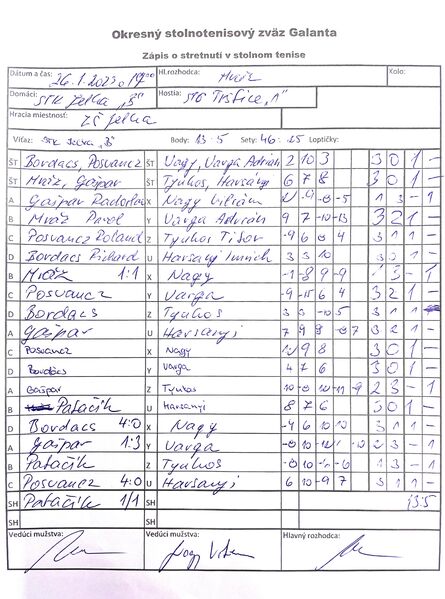 Okresný stolnotenisový zväz Galanta
Zápis o stretnutí v stolnom tenise
Dátum a čas: 26.1.2023, 19:00 Hl.rozhodca: Mráz Kolo:
Domáci: STK Jelka „B" Hostia: STO Trstice „1"
Hracia miestnosť: ZŠ Jelka
Víťaz: STK Jelka „B" Body: 13:5 Sety: 46:25 Loptičky:
ŠT Bordacs, Posvancz ŠT Nagy, Varga Adrián 2 10 3 3 0 1 -
ŠT Mráz, Gašpar ŠT Tyukos, Harsányi 6 7 8 3 0 1 -
A Gašpar X Nagy 1 3 - 1
B Mráz Pavol Y Varga Adrián 9 7 -10 -13 3 2 1
C Posvancz Roland Z Tyukos Tibor -9 6 0 4 3 1 1 -
D Bordacs Richard U Harsanyi 3 3 10 3 0 1
B Mráz 1:1 X Nagy -1 -8 9 -9 1 3 - 1
C Posvancz Y Varga -9 -15 6 4 3 2 1 -
D Bordacs Z Tyukos 3 3 -10 5 3 1 1
A Gašpar U Harsanyi 7 9 3 2 1
C Posvancz X Nagy 9 8 3 0 1
D Bordacs Y Varga 4 7 6 3 0 1 -
A Gašpar Z Tyukos 2 3 - 1
B Patáčik U Harsanyi 8 7 6 3 0 1 -
D Bordacs 4:0 X Nagy -4 6 10 10 3 1 1 -
A Gašpar 1:3 Y Varga 2 3 - 1
B Patáčik Z Tyukos 1 3 - 1
C Posvancz 4:0 U Harsanyi 6 10 -9 7 3 1 1
SH Patáčik 1/1 SH 13:5
SH SH
Vedúci mužstva: Vedúci mužstva: Hlavný rozhodca: